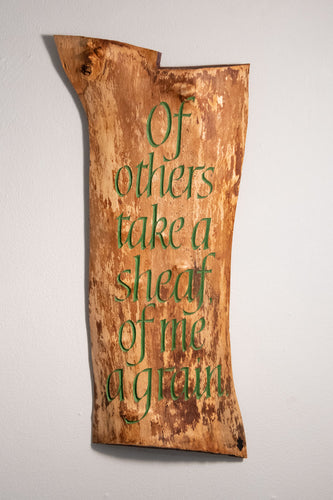 Of
others
take a
sheaf
of me
a grain